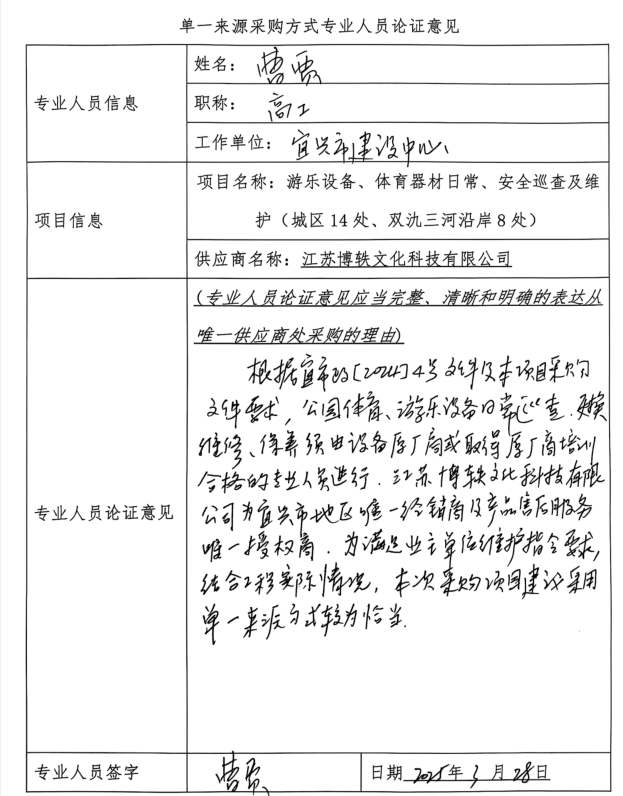 单一来源采购方式专业人员论证意见
专业人员信息
姓名：曹贾
职称：高工
工作单位：宜兴市建设中心
项目信息
项目名称：游乐设备、体育器材日常、安全巡查及维
护（城区14处、双氿三河沿岸8处）
供应商名称：江苏博轶文化科技有限公司
专业人员论证意见
(专业人员论证意见应当完整、清晰和明确的表达从
唯一供应商处采购的理由)
根据宜市政[2024]4号文件及本项目采购
文件要求，公园体育、游乐设备日常巡查、
维修、保养须由设备原厂商或取得原厂商培训
合格的专业人员进行．江苏博轶文化科技有限
公司为宜兴市地区唯一经销商及产品售后服务
唯一授权商．为满足业主单位维护指令要求，
结合工程实际情况，本次采购项目建议采用
单一来源方式较为恰当．
专业人员签字
曹贾
日期 2025年3月28日